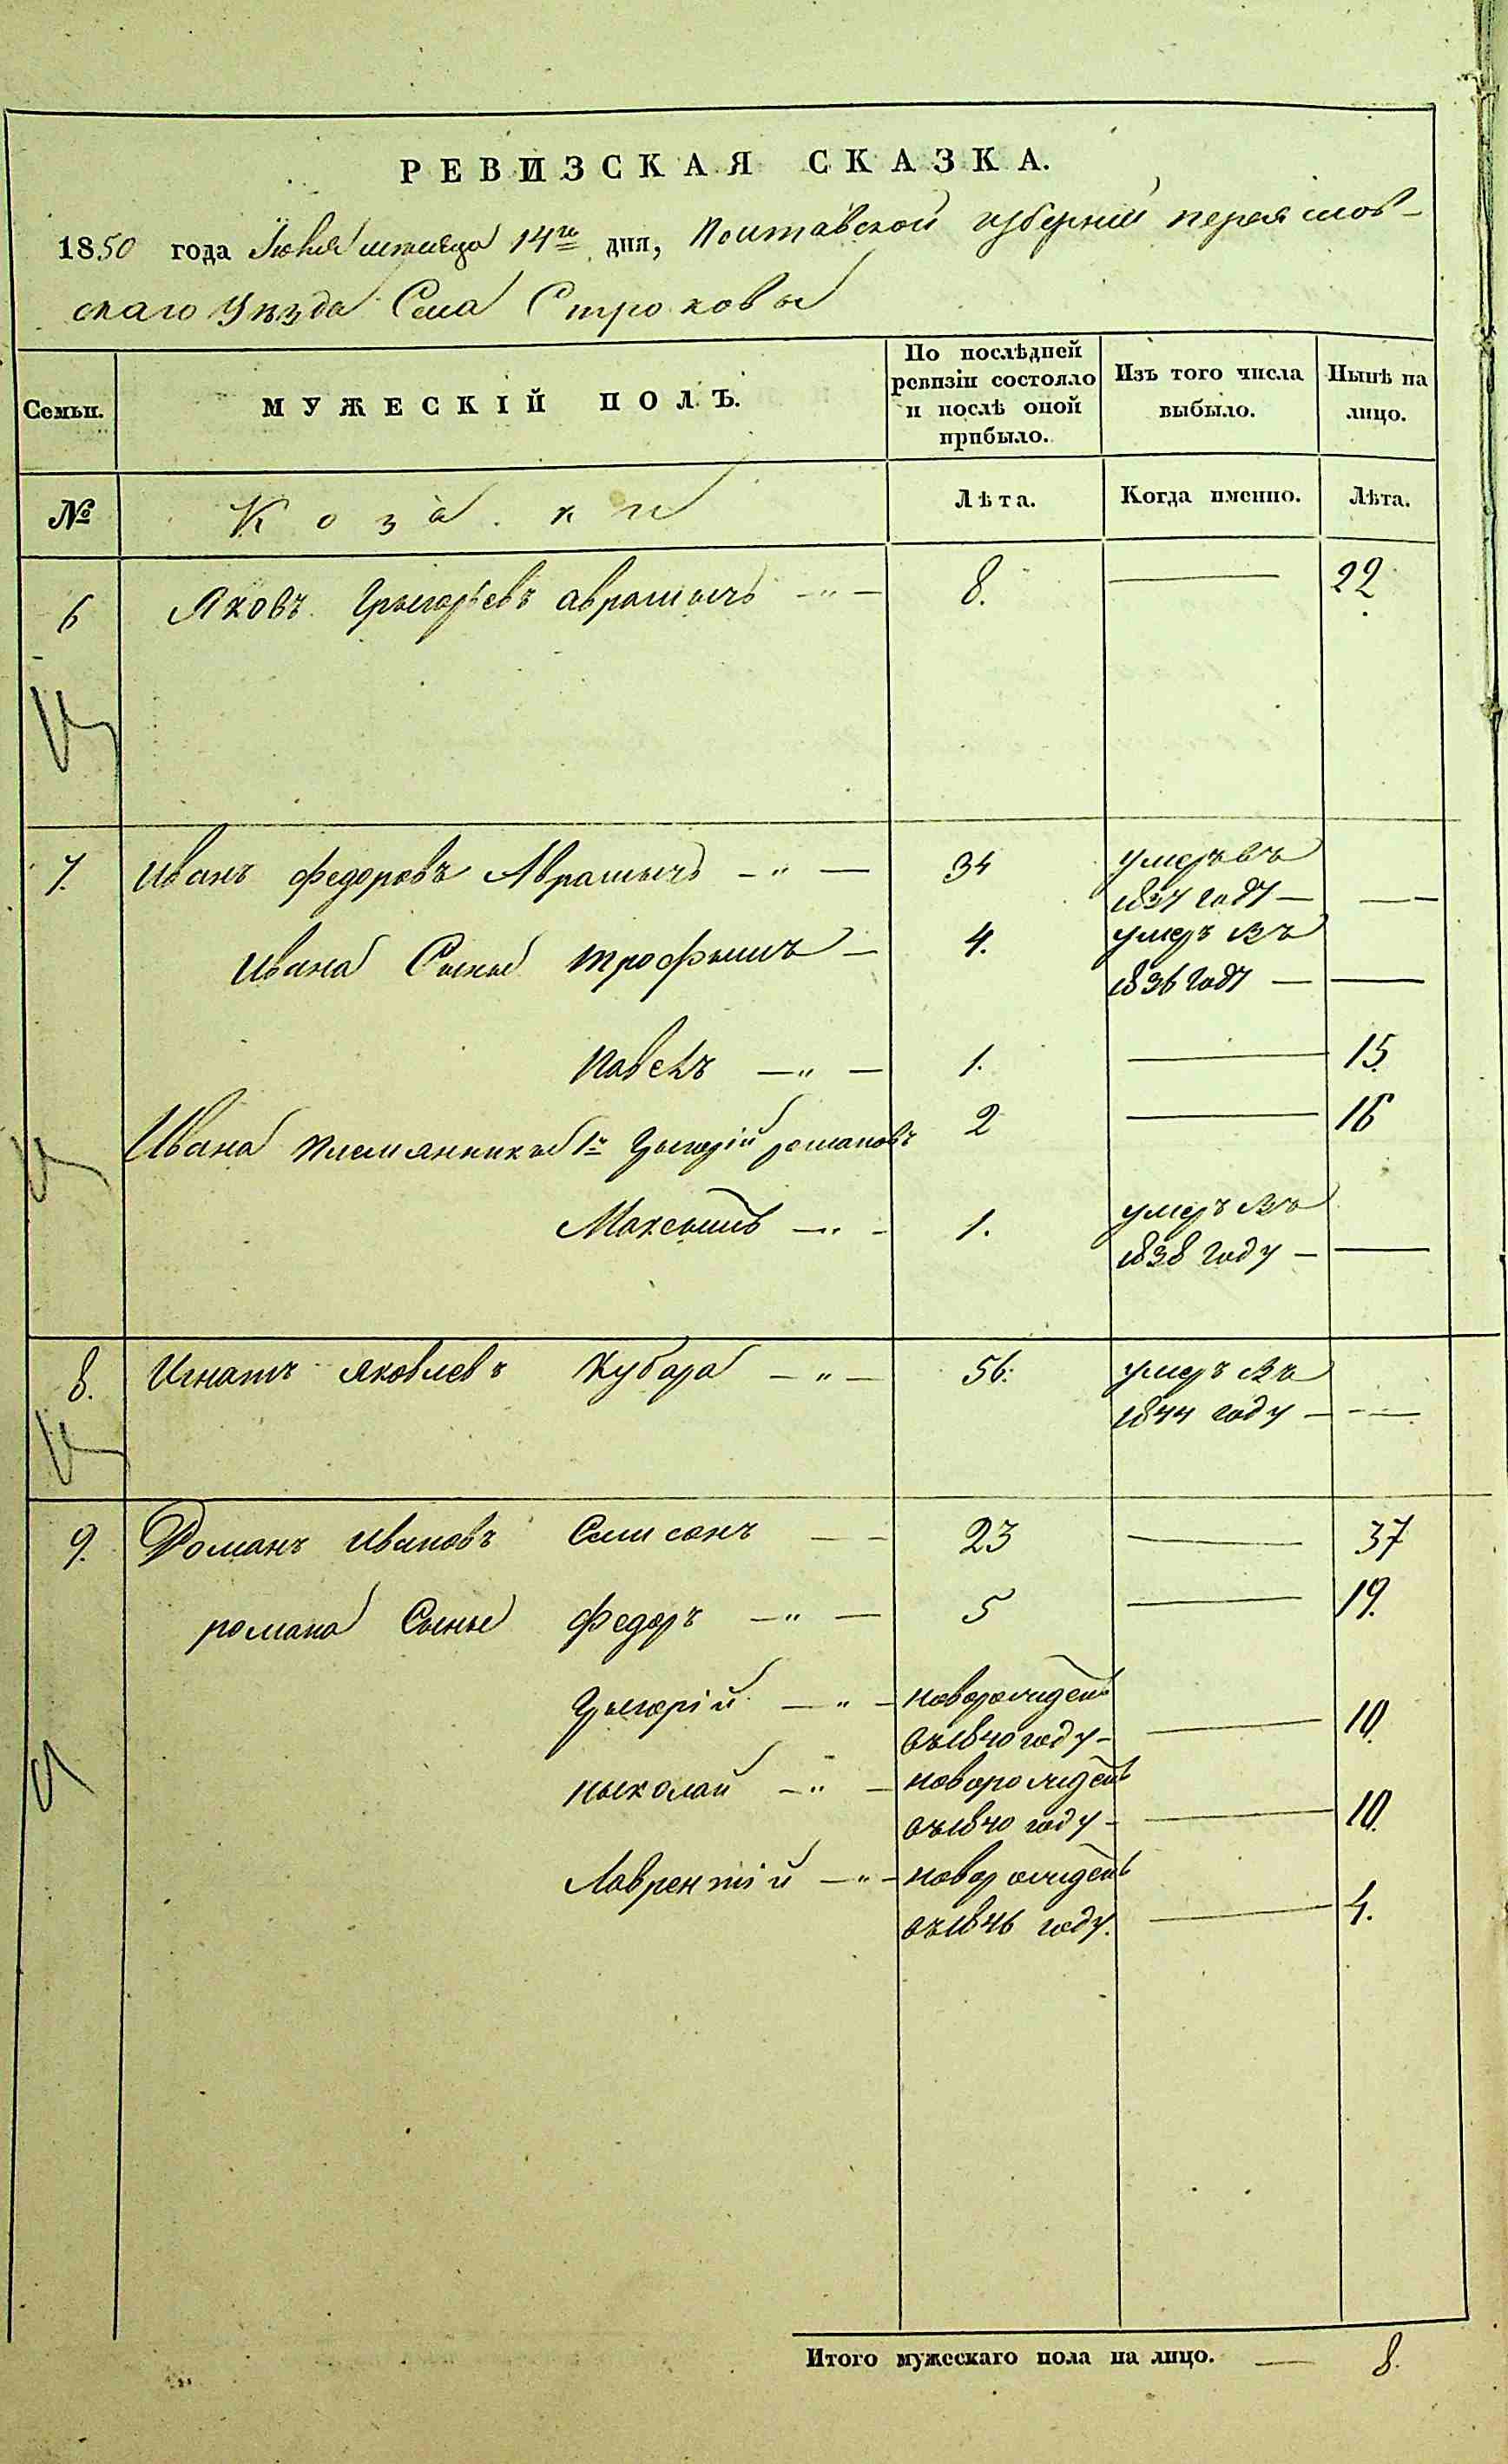 РЕВИЗСКАЯ СКАЗКА.
1850 года Іюня мѣсяца 14го дня, Полтавской губерніи переяслов-
скаго уѣзда Села Строковы
Семьи.
МУЖЕСКІЙ ПОЛЪ.
По послѣдней ревизіи состояло и послѣ оной прибыло.
Изъ того числа выбыло.
Нынѣ на лицо.
№ Козаки Лѣта. Когда именно. Лѣта.
6 Яковъ Грыгорьевъ аврамычъ — " — 8. — 22
7. Иванъ федоровъ Аврамычъ — " — 34 умеръ въ
1837 году — —
Ивана Сыны трофымъ — 4. умеръ въ
1836 году — —
павелъ — " — 1. — 15
Ивана племянники 1й Грыгорій романовъ 2 — 16
Максымъ — " — 1. умеръ въ
1838 году — —
8. Игнатъ яковлевъ Кубара — " — 56. умеръ въ
1844 году — —
9. Романъ Ивановъ Самсонъ — 23 — 37
романа Сыны федоръ — " — 5 — 19.
Грыгорій — " — новорожден
въ 1840 году — — 10.
ныколай — " — новорожден
въ 1840 году — — 10.
Лаврентій — " — новорожден
въ 1846 году. — 4.
Итого мужескаго пола на лицо. — 8.